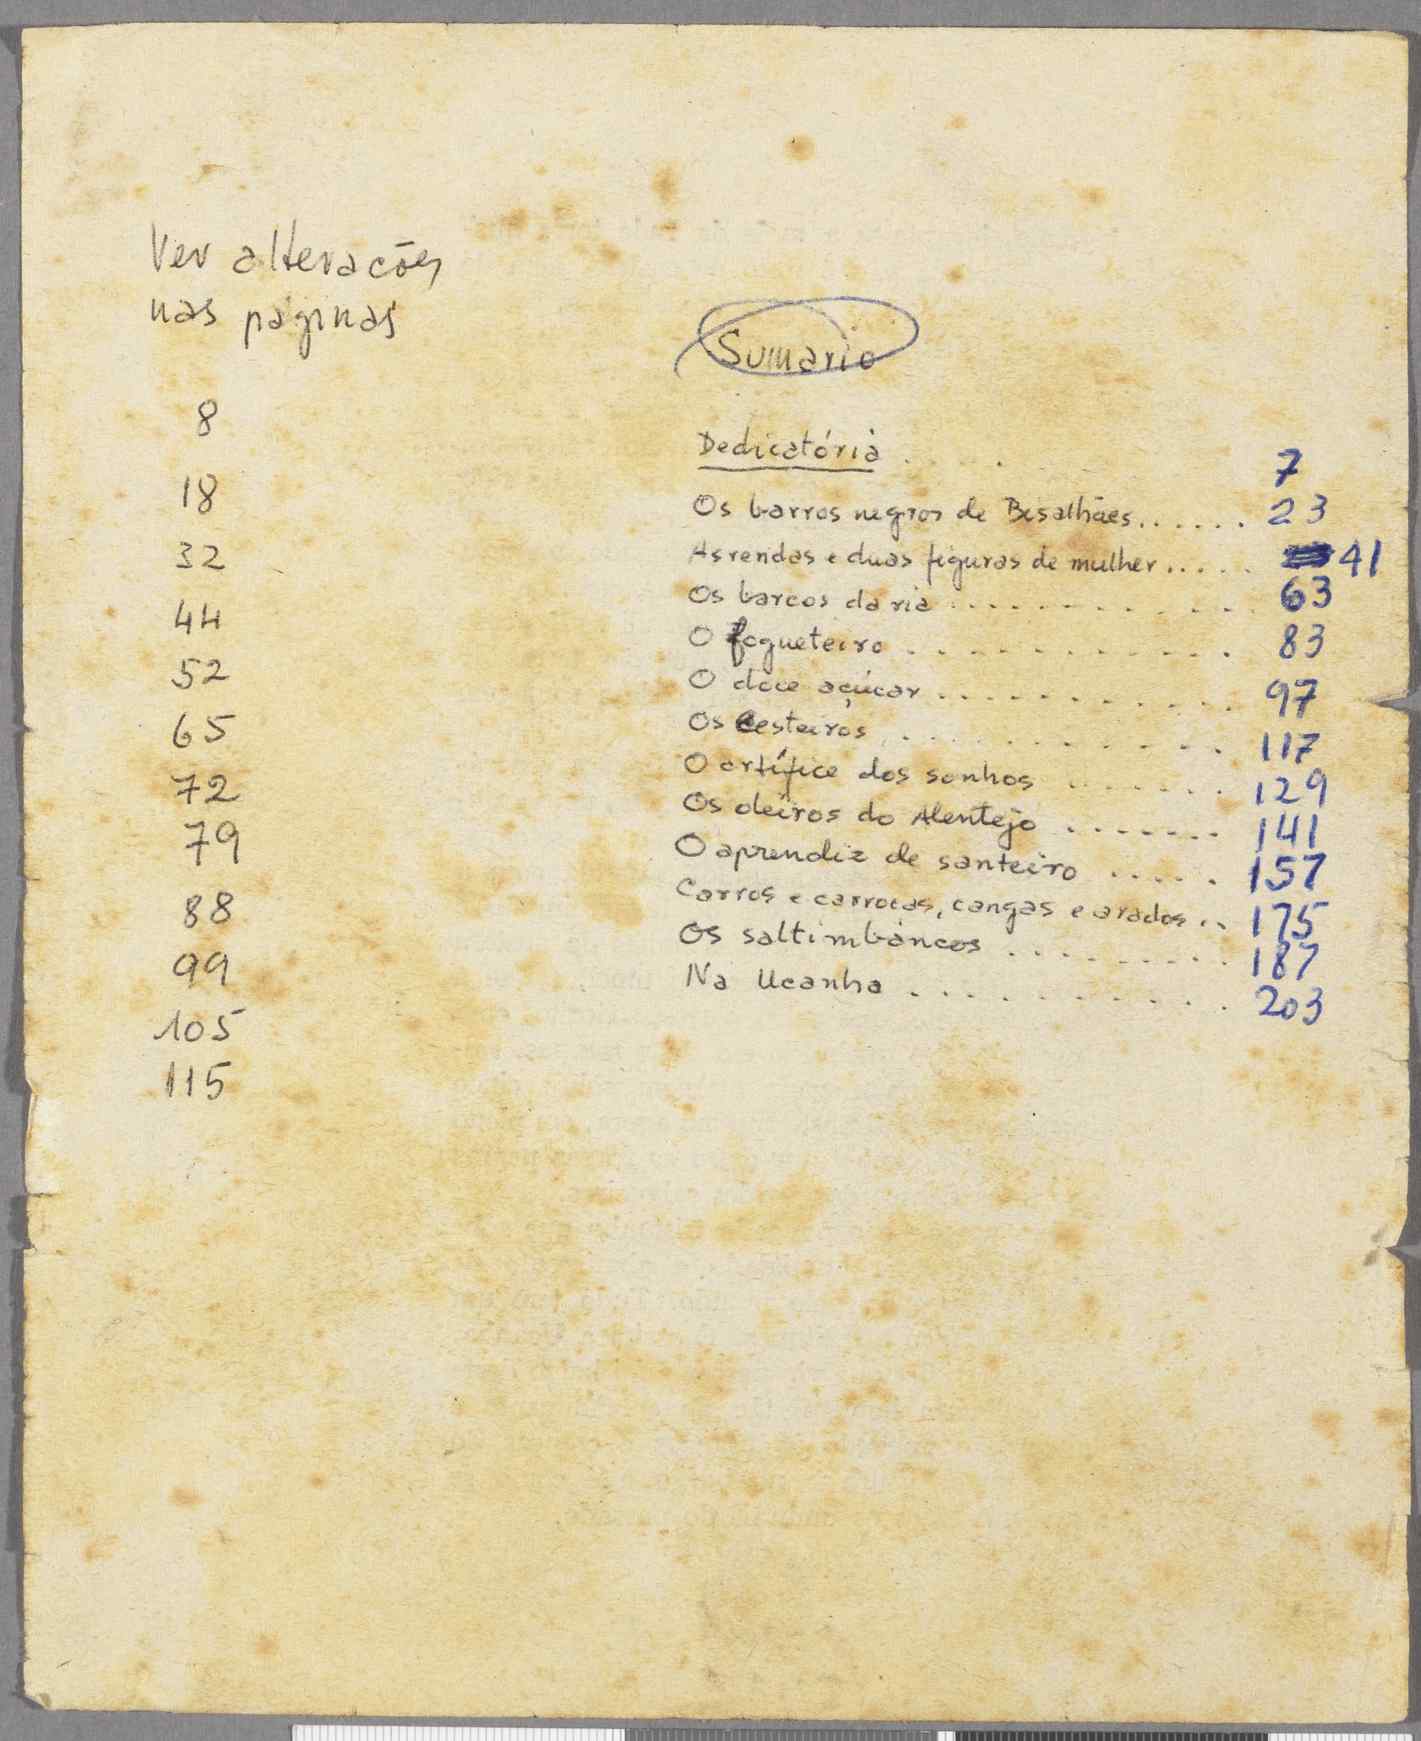 Ver alterações
nas páginas
8
18
32
44
52
65
72
79
88
99
105
115
Sumario
Dedicatória . . . 7
Os barros negros de Bisalhães...... 23
As rendas e duas figuras de mulher..... 41
Os barcos da ria ............ 63
O fogueteiro ........... 83
O doce açúcar ........... 97
Os Cesteiros ............ 117
O artífice dos sonhos ....... 129
Os oleiros do Alentejo ....... 141
O aprendiz de santeiro ..... 157
Carros e carroças, cangas e arados .. 175
Os saltimbancos ......... 187
Na Ucanha ........... 203